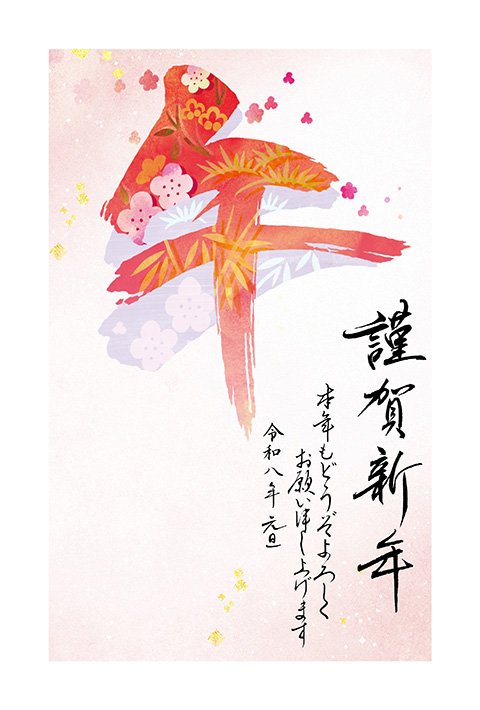 午
謹賀新年
本年もどうぞよろしく
お願い申し上げます
令和八年 元旦